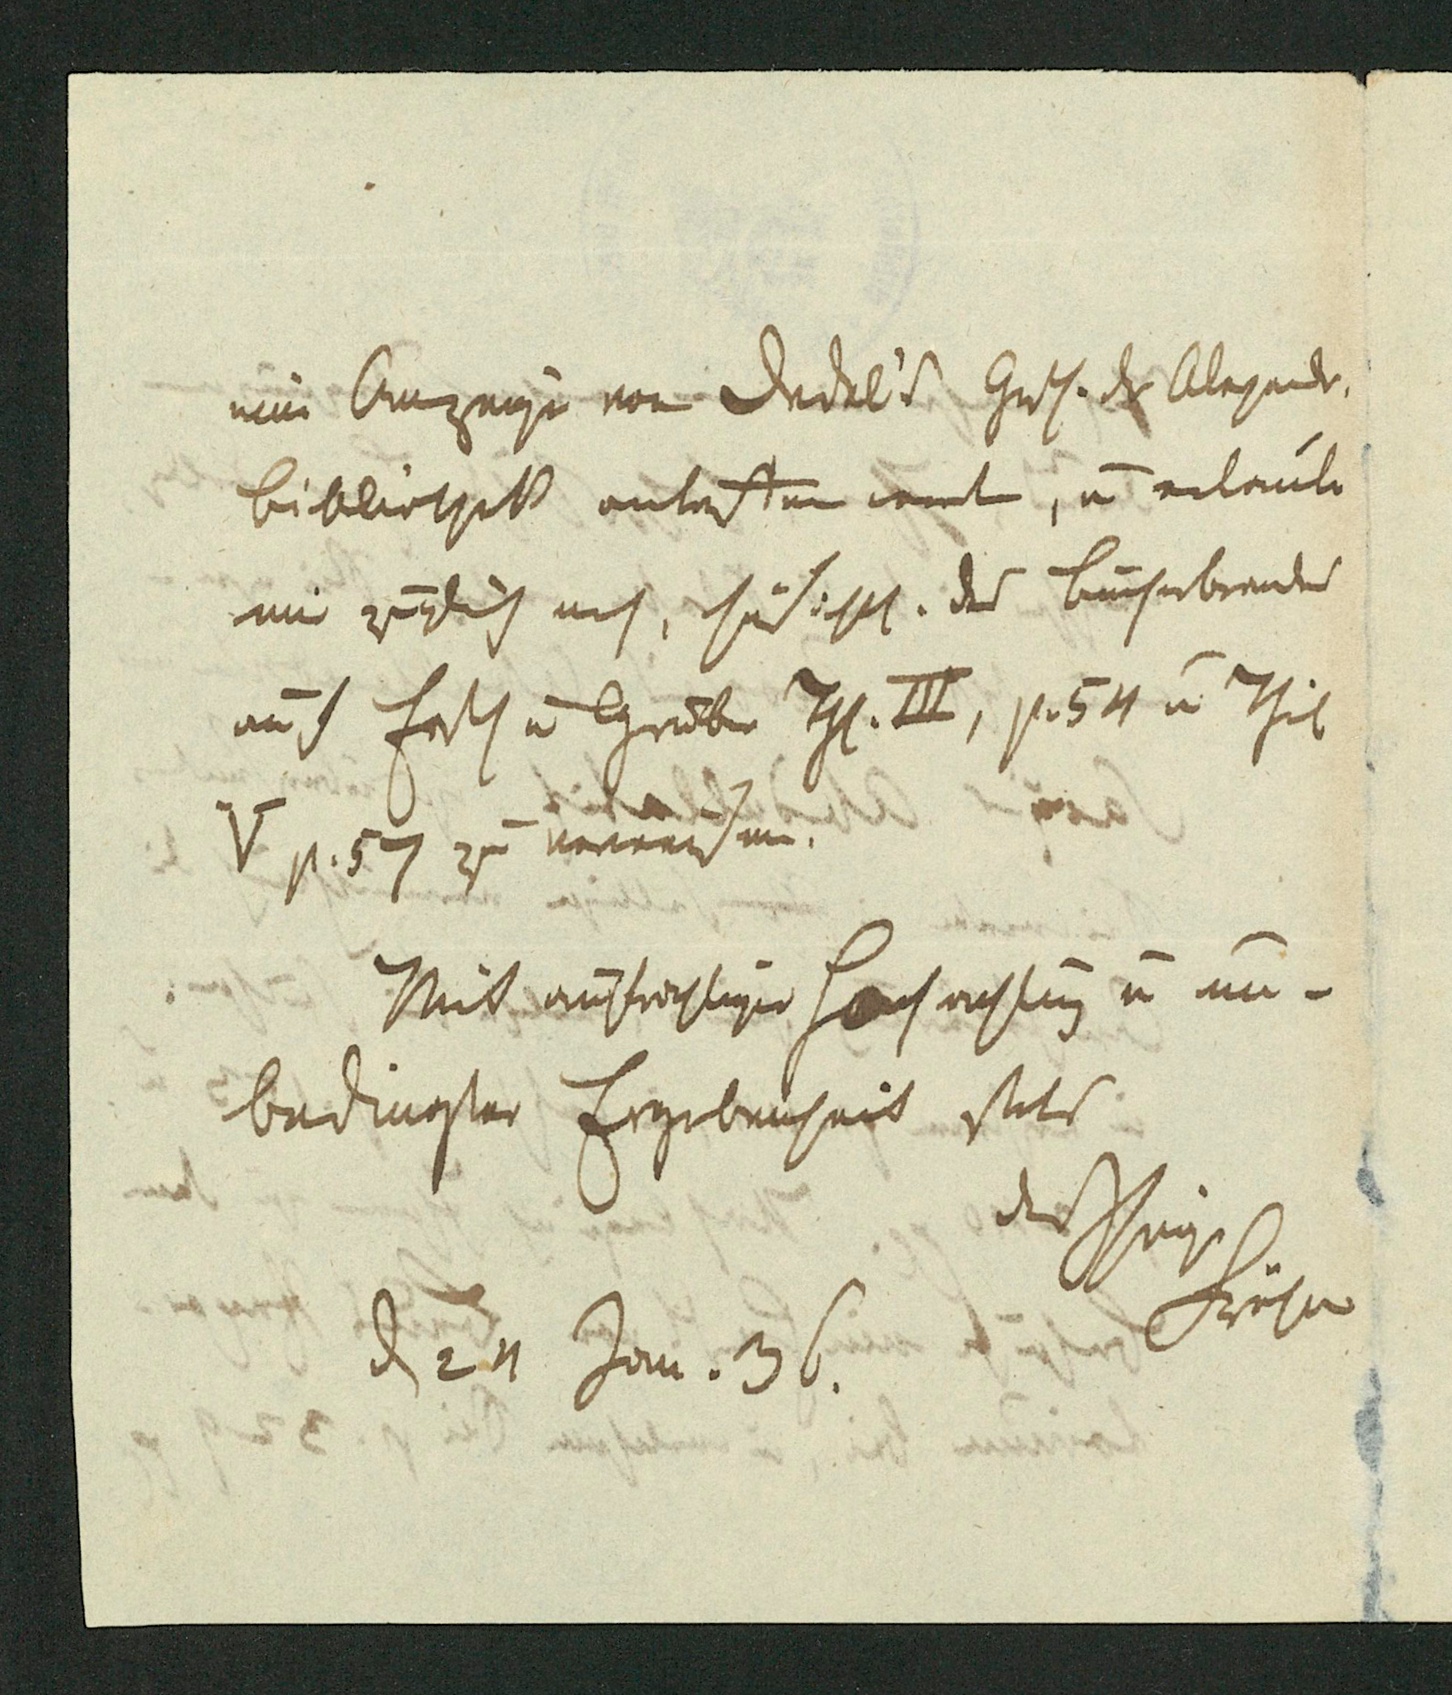 eine Anzeige von Dedel's Gesch. der Alexandr.
Bibliothek enthalten, u erlaube
mir zugleich noch, hinsichtl. des Bücherbrandes
auf Ersch u Gruber Thl. III, p. 54 u Thl
V p. 57 zu verweisen.
Mit aufrichtiger Hochachtung u un-
bedingter Ergebenheit stets
der Ihrige
Frähn
d 24 Jan. 36.